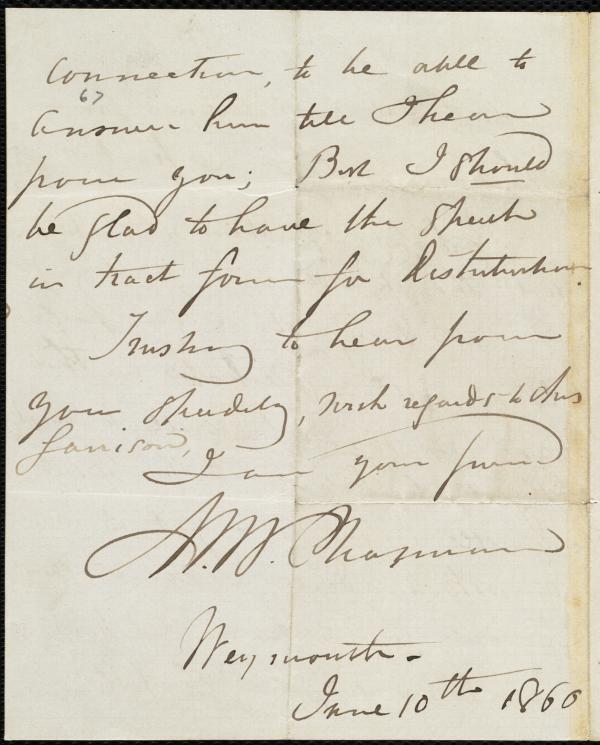 connection, to be able to
67
answer him till I hear
from you; But I should
be glad to have the speech
in tract form for distribution.
Trusting to hear from
you speedily, with regards to Mrs
Garrison,
I am your friend
Chapman
Weymouth.
June 10th 1860